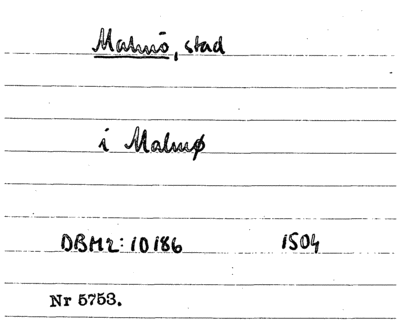 Malmö, stad
i Malmø
DBH2:10186 1504
Nr 5753.